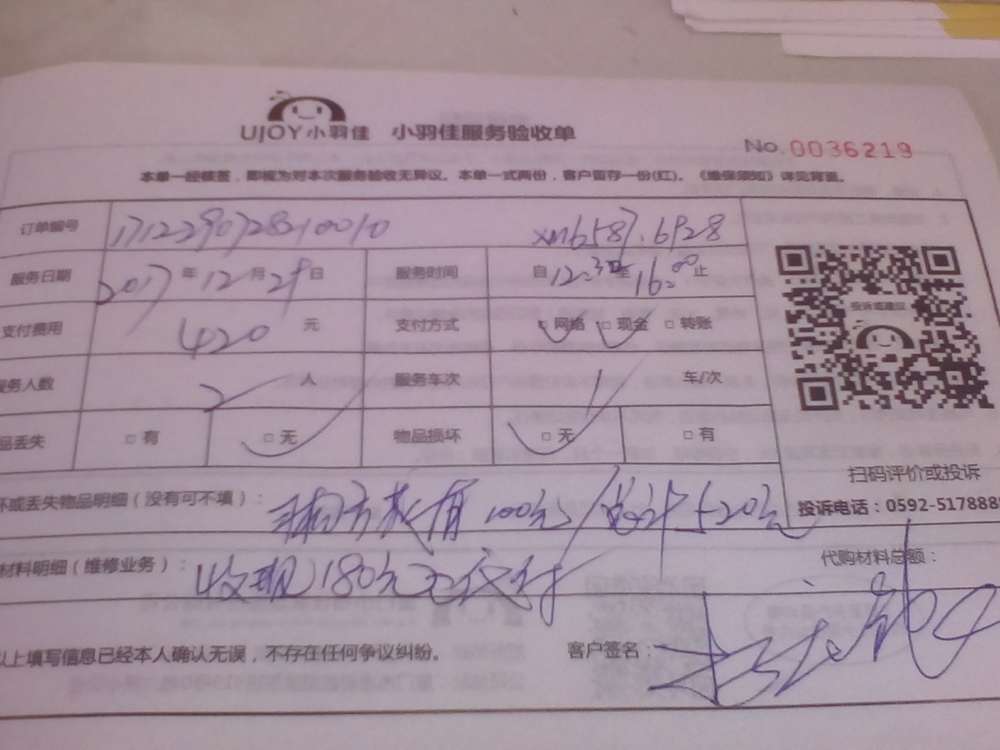 UJOY小羽佳 小羽佳服务验收单
No. 0036219
本单一经核签，即视为对本次服务验收无异议。本单一式两份，客户留存一份(红)。《维保须知》详见背面。
订单编号 xm6587.6928
服务日期 2017年12月29日 服务时间 自12:30至16:00止
支付费用 420元 支付方式 □网络 □现金 □转账
投诉或建议
服务人数 2人 服务车次 1车/次
品丢失 □有 □无 物品损坏 □无 □有
扫码评价或投诉
坏或丢失物品明细（没有可不填）： 100元/总计520元
投诉电话：0592-517888
材料明细（维修业务）： 收现180元 代购材料总额：
以上填写信息已经本人确认无误，不存在任何争议纠纷。 客户签名：